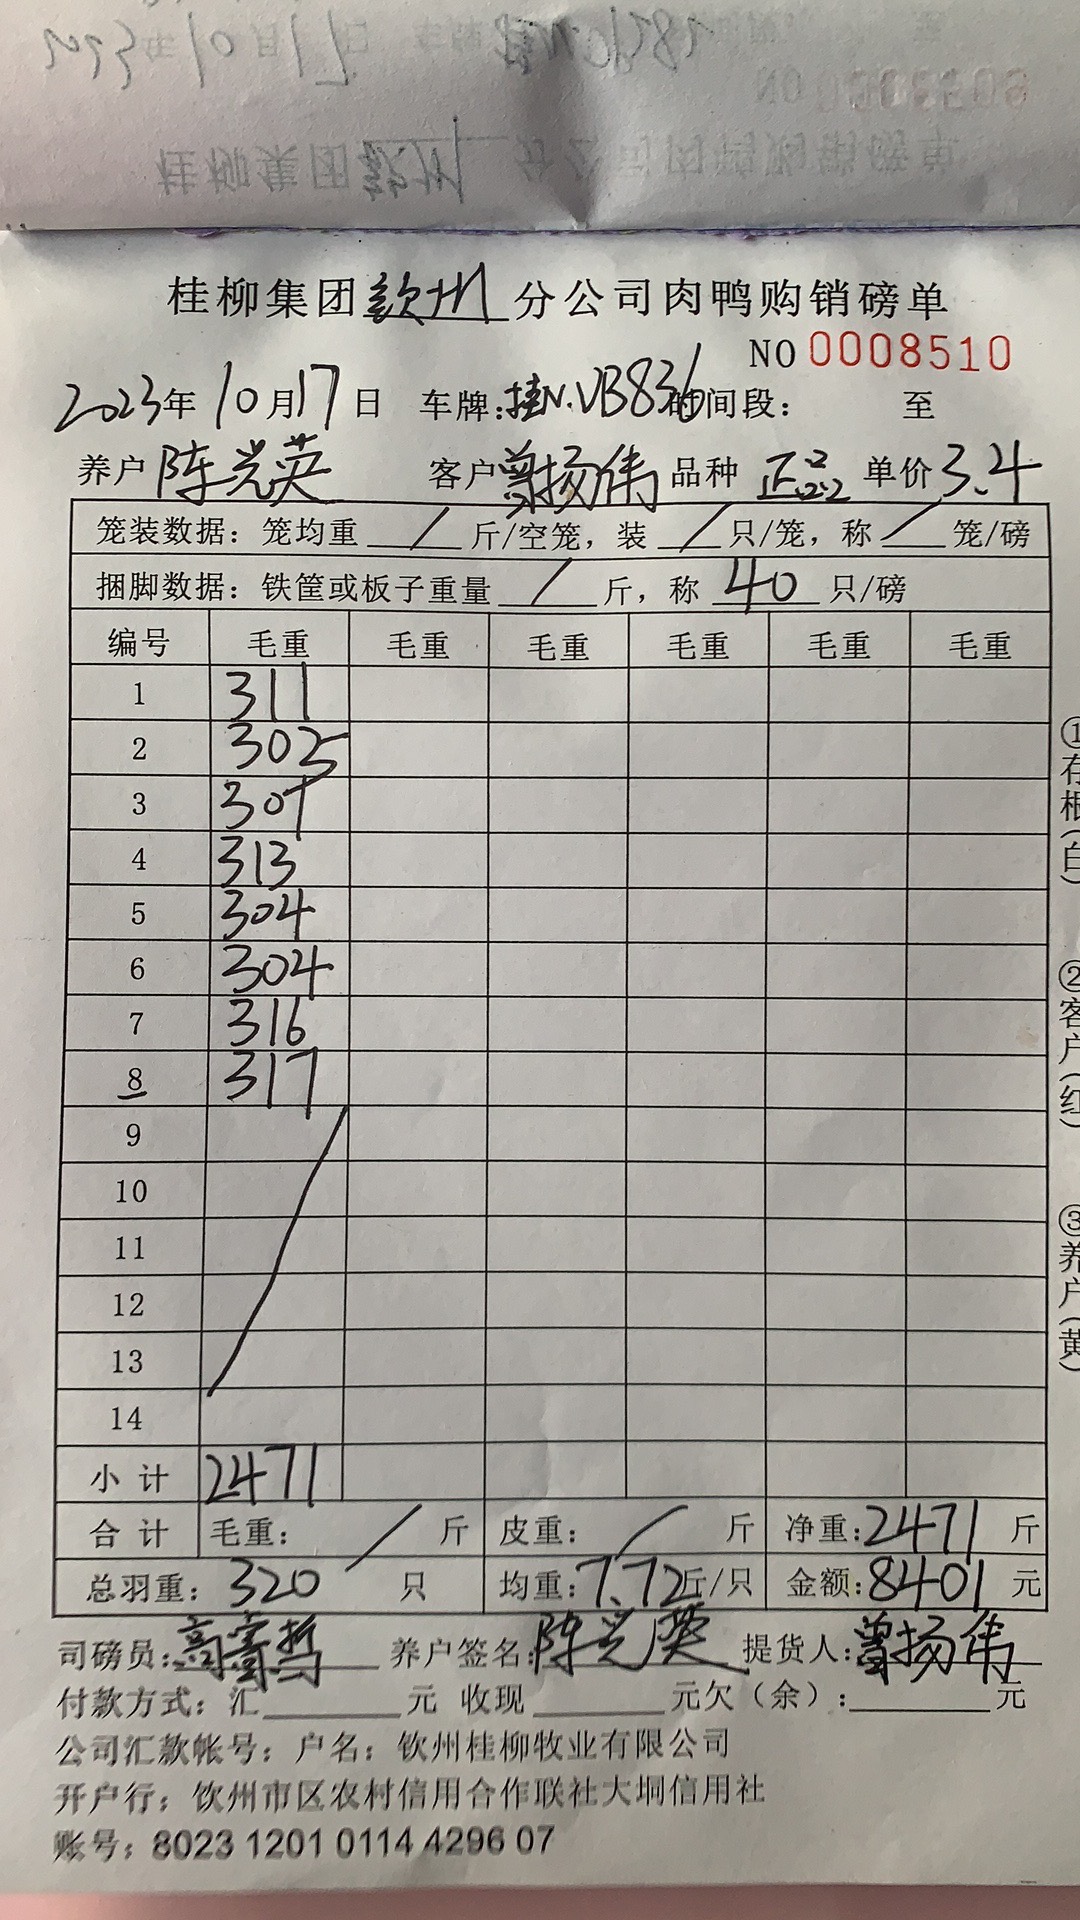 桂柳集团钦州分公司肉鸭购销磅单
NO 0008510
2023年10月17日 车牌:桂N.VB836 时间段: 至
养户 陈兴英 客户 曾扬伟 品种 正品 单价 3.4
笼装数据: 笼均重 / 斤/空笼, 装 / 只/笼, 称 / 笼/磅
捆脚数据: 铁筐或板子重量 / 斤, 称 40 只/磅
编号 毛重 毛重 毛重 毛重 毛重 毛重
1 311
2 305
3 301
4 313
5 304
6 304
7 316
8 317
9
10
11
12
13
14
小计 2471
合计 毛重: / 斤 皮重: / 斤 净重: 2471 斤
总羽重: 320 只 均重: 7.72 斤/只 金额: 8401 元
司磅员: 高 哲 养户签名: 陈兴英 提货人: 曾扬伟
付款方式: 汇 元 收现 元 欠(余): 元
公司汇款帐号: 户名: 钦州桂柳牧业有限公司
开户行: 钦州市区农村信用合作联社大垌信用社
账号: 8023 1201 0114 4296 07
①存根(白)
②客户(红)
③养户(黄